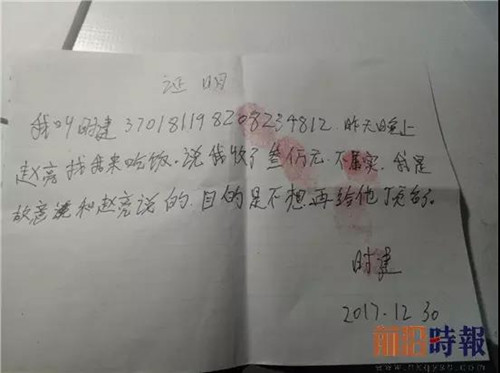 证明
我叫时建370181198208234812.昨天晚上
赵亮找我来哈饭。说我收了叁仟元.不属实.我是
故意和赵亮说的.目的是不想再给他顶包了。
时建
2017.12.30
前沿時報
www.nxqysb.com